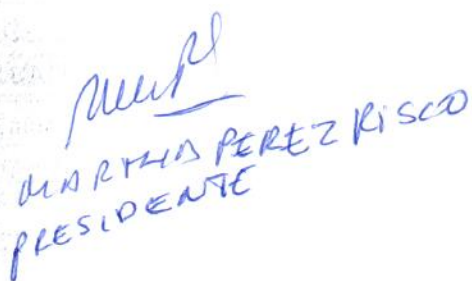 MARTHA PEREZ RISCO
PRESIDENTE